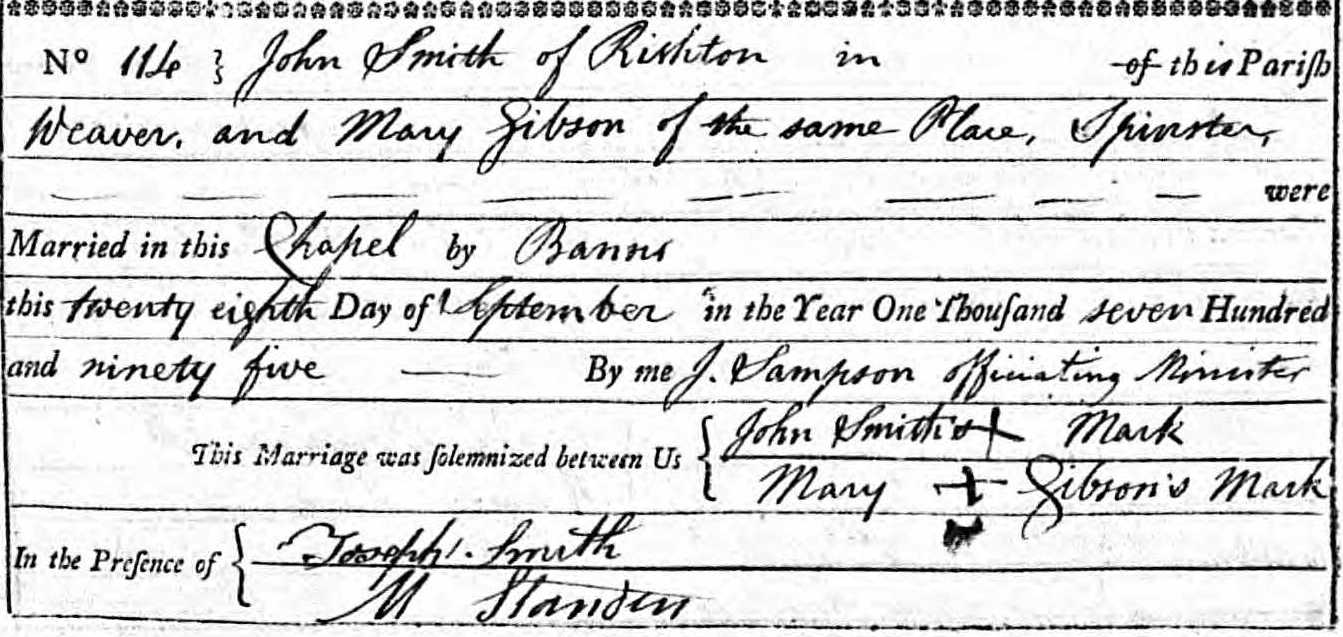 Nº 114 } John Smith of Rishton in of this Pariſh
Weaver, and Mary Gibson of the same Place, Spinster,
were
Married in this Chapel by Banns
this twenty eighth Day of September in the Year One Thouſand seven Hundred
and ninety five By me J. Sampson officiating Minister
This Marriage was ſolemnized between Us { John Smith's + Mark
Mary + Gibson's Mark
In the Preſence of { Joseph Smith
M Standen